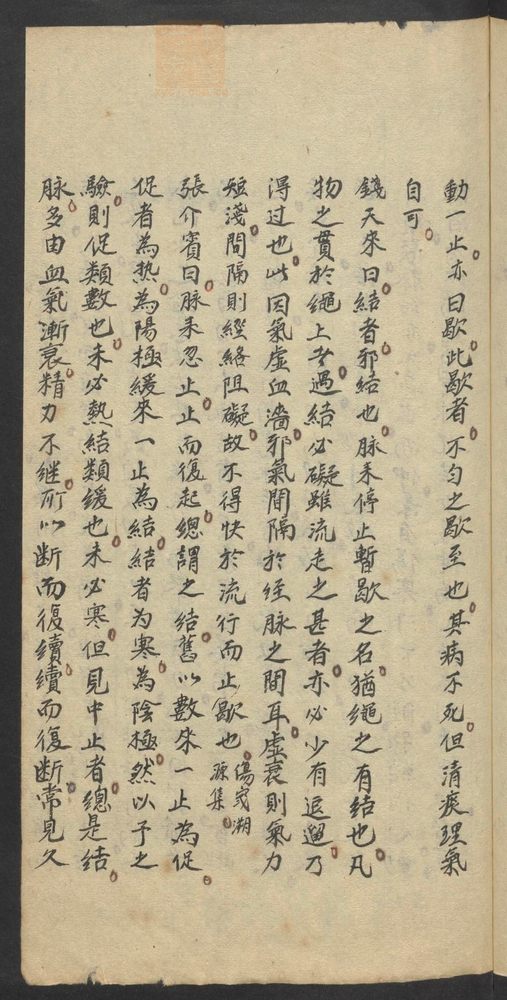 動一止亦曰歇此歇者不匀之歇至也其病不死但清痰理氣
自可
錢天來曰結者邪結也脉来停止暫歇之名猶繩之有结也凡
物之貫於繩上者遇結必礙雖流走之甚者亦必少有逗遛乃
得过也此因氣虚血濇邪氣間隔於经脉之間耳虚衰則氣力
短淺間隔則經絡阻礙故不得快於流行而止歇也傷寒溯源集
張介賓曰脉来忽止止而復起總謂之结舊以數来一止為促
促者為热為陽極緩来一止為結結者为寒為陰極然以予之
驗則促類數也未必熱結類缓也未必寒但見中止者總是结
脉多由血氣漸衰精力不继所以断而復續續而復断常見久